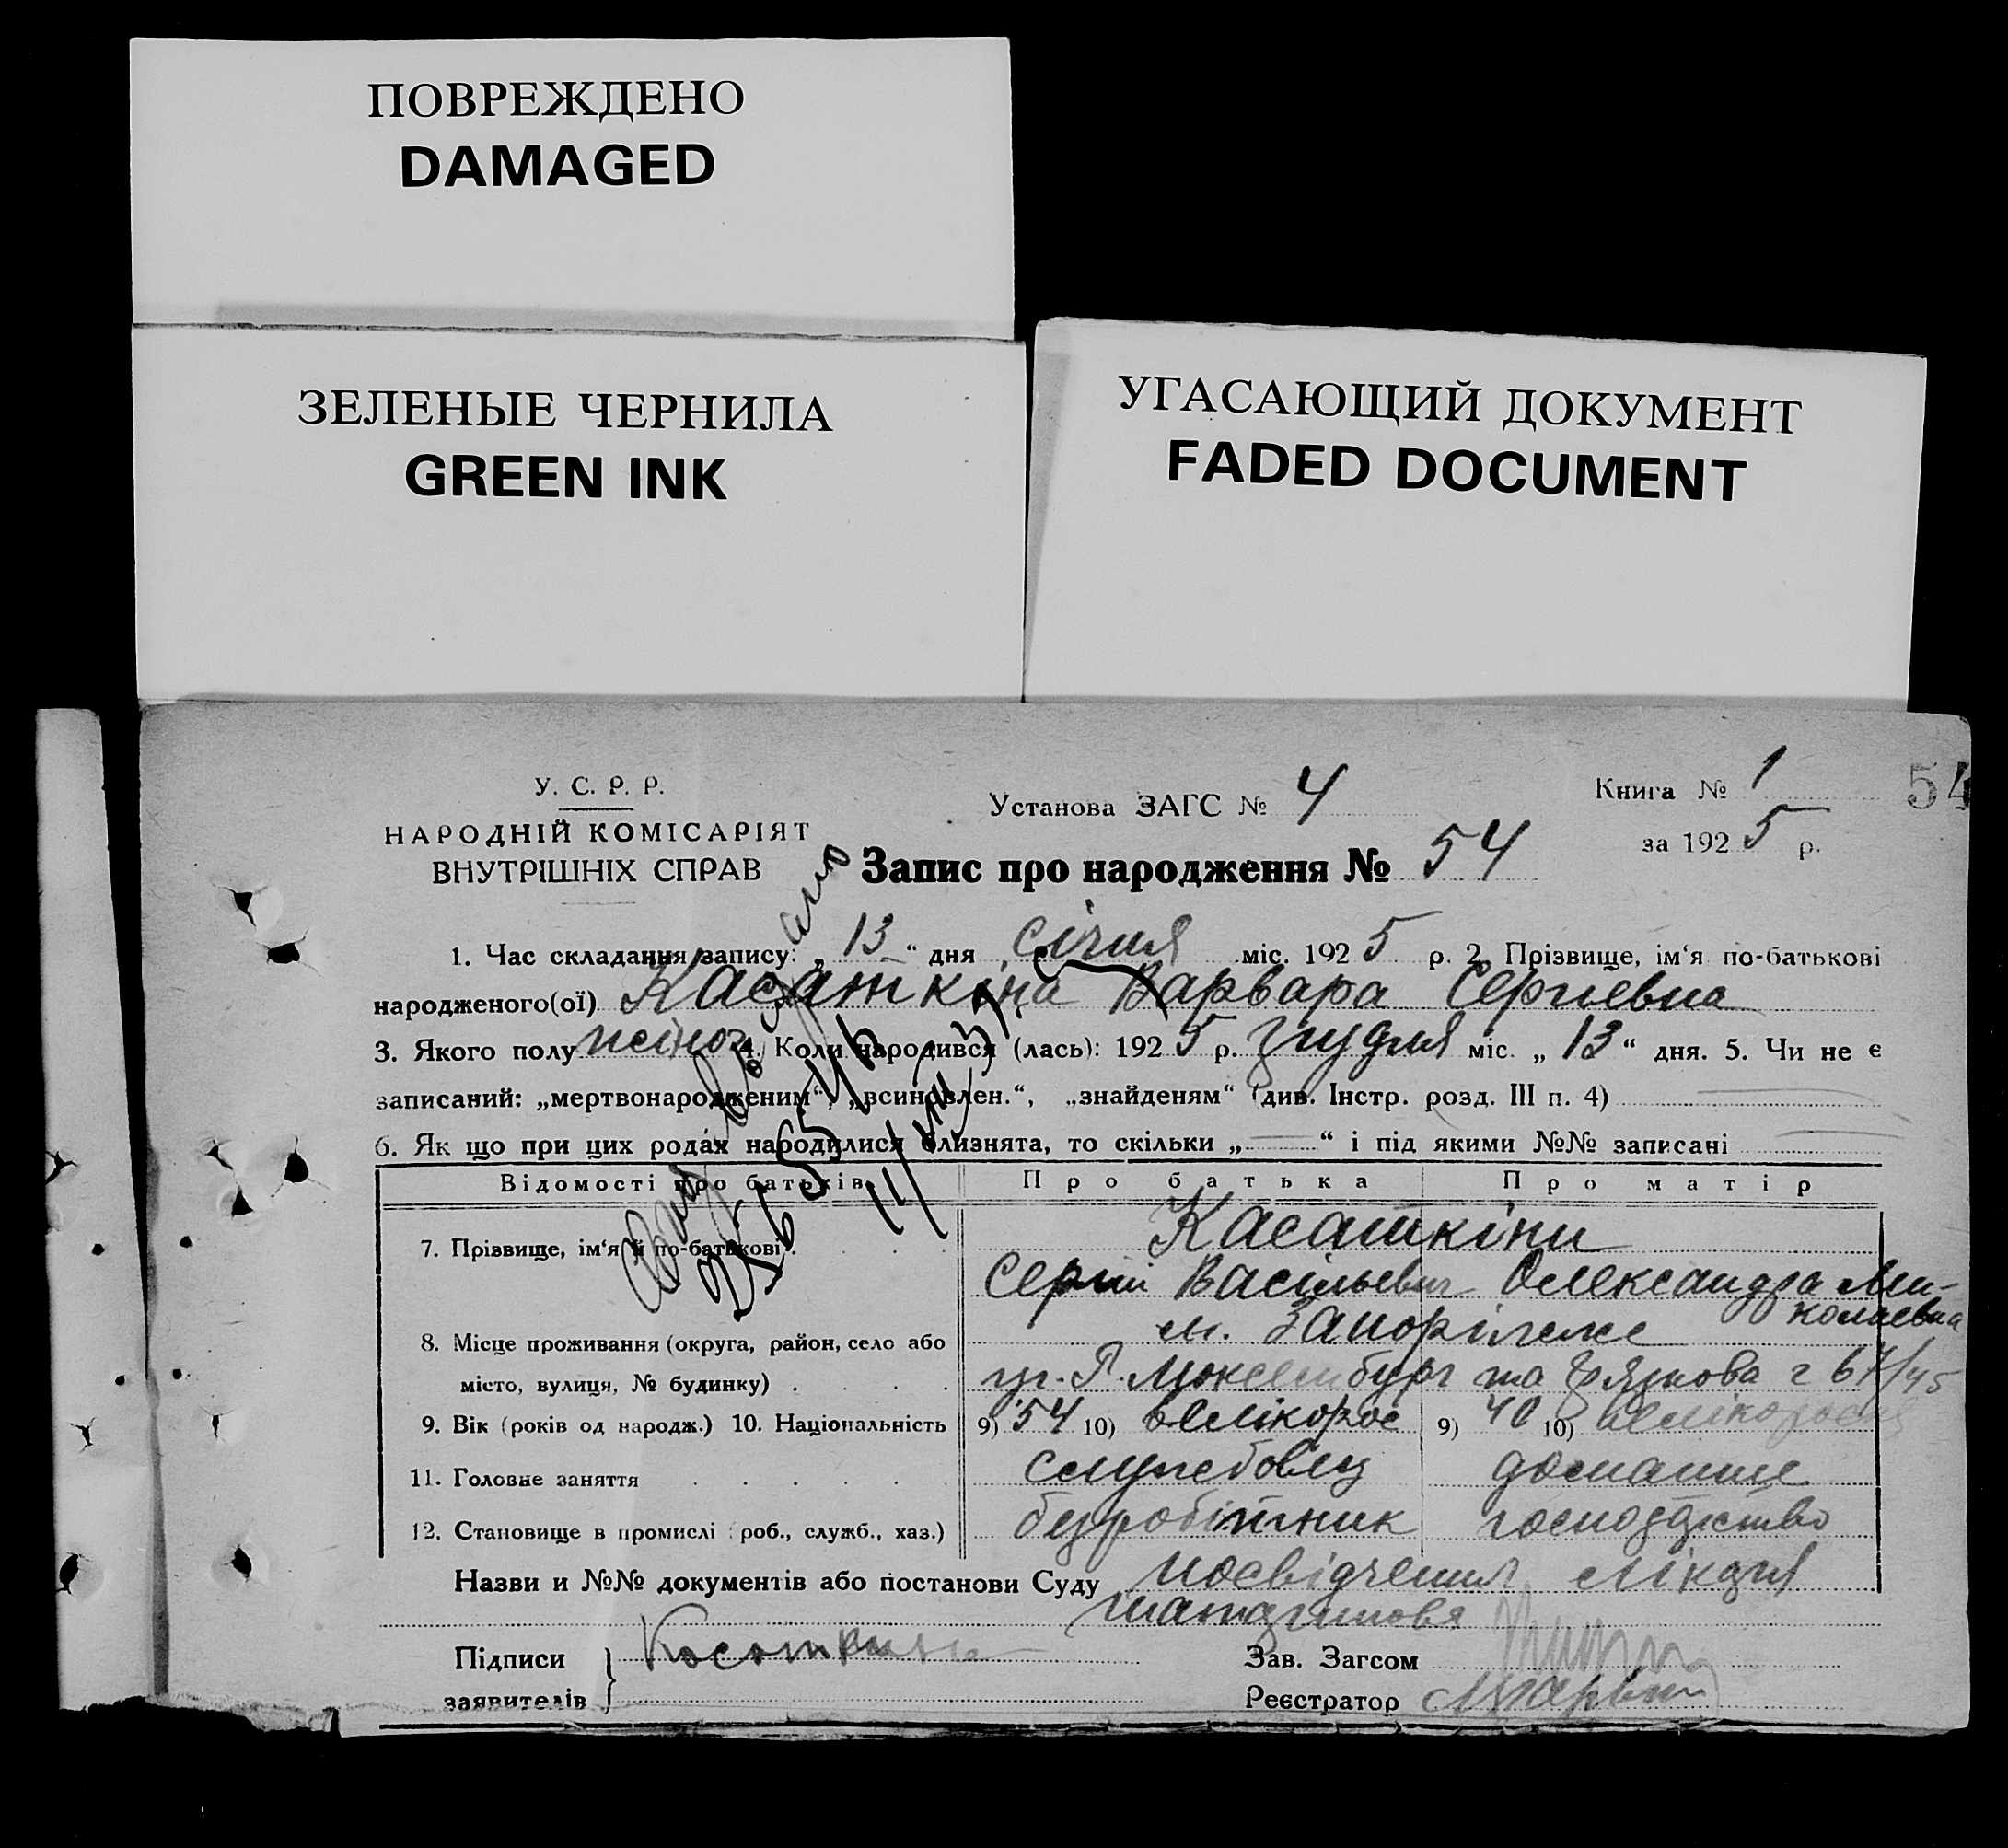 ПОВРЕЖДЕНО
DAMAGED
ЗЕЛЕНЫЕ ЧЕРНИЛА
GREEN INK
УГАСАЮЩИЙ ДОКУМЕНТ
FADED DOCUMENT
У. С. Р. Р.
НАРОДНІЙ КОМІСАРІЯТ
ВНУТРІШНІХ СПРАВ
Установа ЗАГС № 4
Книга № 1
54
за 1925 р.
Запис про народження № 54
1. Час складання запису: „ 13 “ дня січня міс. 1925 р. 2. Прізвище, ім‘я по-батькові
народженого(ої) Касаткіна Варвара Сергіевна
3. Якого полу жіноч 4. Коли народився (лась): 1925 р. грудня міс. „ 13 “ дня. 5. Чи не є
записаний: „мертвонародженим“, „всиновлен.“, „знайденям“ (див. Інстр. розд. III п. 4)
6. Як що при цих родах народилися близнята, то скільки „ — “ і під якими №№ записані
Відомості про батьків Про батька Про матір
7. Прізвище, ім‘я й по-батькові Касаткіни
Сергій Васільевич Олександра Ми-
колаевна
8. Місце проживання (округа, район, село або м. Запоріжже
місто, вулиця, № будинку) Р. Люксембург та 67/45
9. Вік (років од народж.) 10. Національність 9) 54 10) велікорос 9) 40 10) велікорос
11. Головне заняття службовец домашне
12. Становище в промислі (роб., служб., хаз.) безробітник господарство
Назви и №№ документів або постанови Суду посвідчення лікаря
Підписи
заявителів
Зав. Загсом
Реєстратор